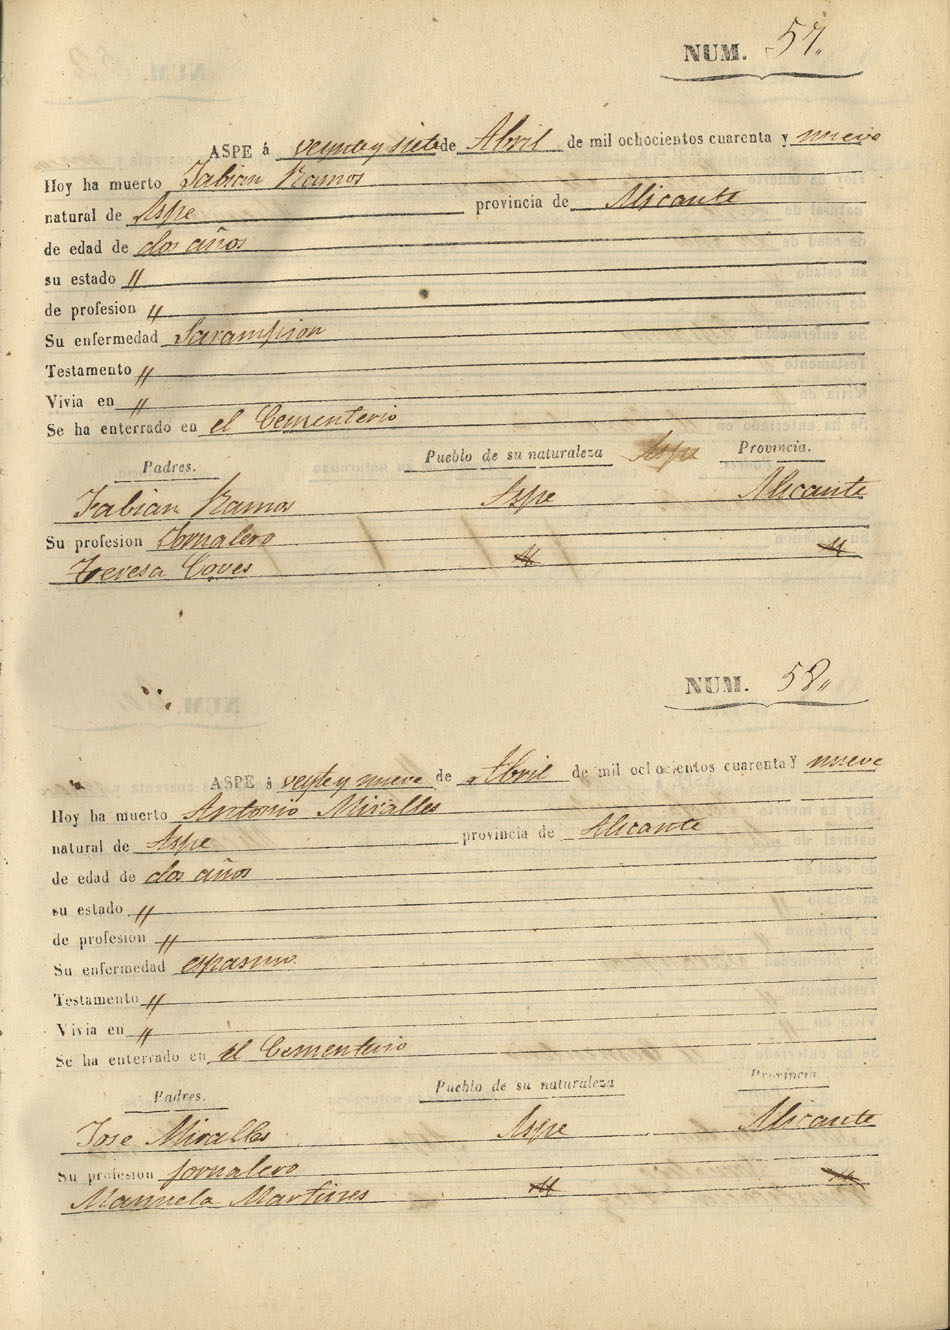 NUM. 57„
ASPE á veynte y siete de Abril de mil ochocientos cuarenta y nueve
Hoy ha muerto Fabian Ramos
natural de Aspe provincia de Alicante
de edad de dos años
su estado „
de profesion „
Su enfermedad Sarampion
Testamento „
Vivia en „
Se ha enterrado en el Cementerio
Padres. Pueblo de su naturaleza Aspe Provincia.
Fabian Ramos Aspe Alicante
Su profesion Jornalero
Teresa Coves „ „
NUM. 58„
ASPE á veynte y nueve de Abril de mil ochocientos cuarenta y nueve
Hoy ha muerto Antonio Miralles
natural de Aspe provincia de Alicante
de edad de dos años
su estado „
de profesion „
Su enfermedad espasmo.
Testamento „
Vivia en „
Se ha enterrado en el Cementerio
Padres. Pueblo de su naturaleza Provincia
Jose Miralles Aspe Alicante
Su profesion jornalero
Manuela Martines „ „